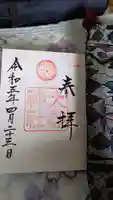 奉拝
令和五年四月二十三日